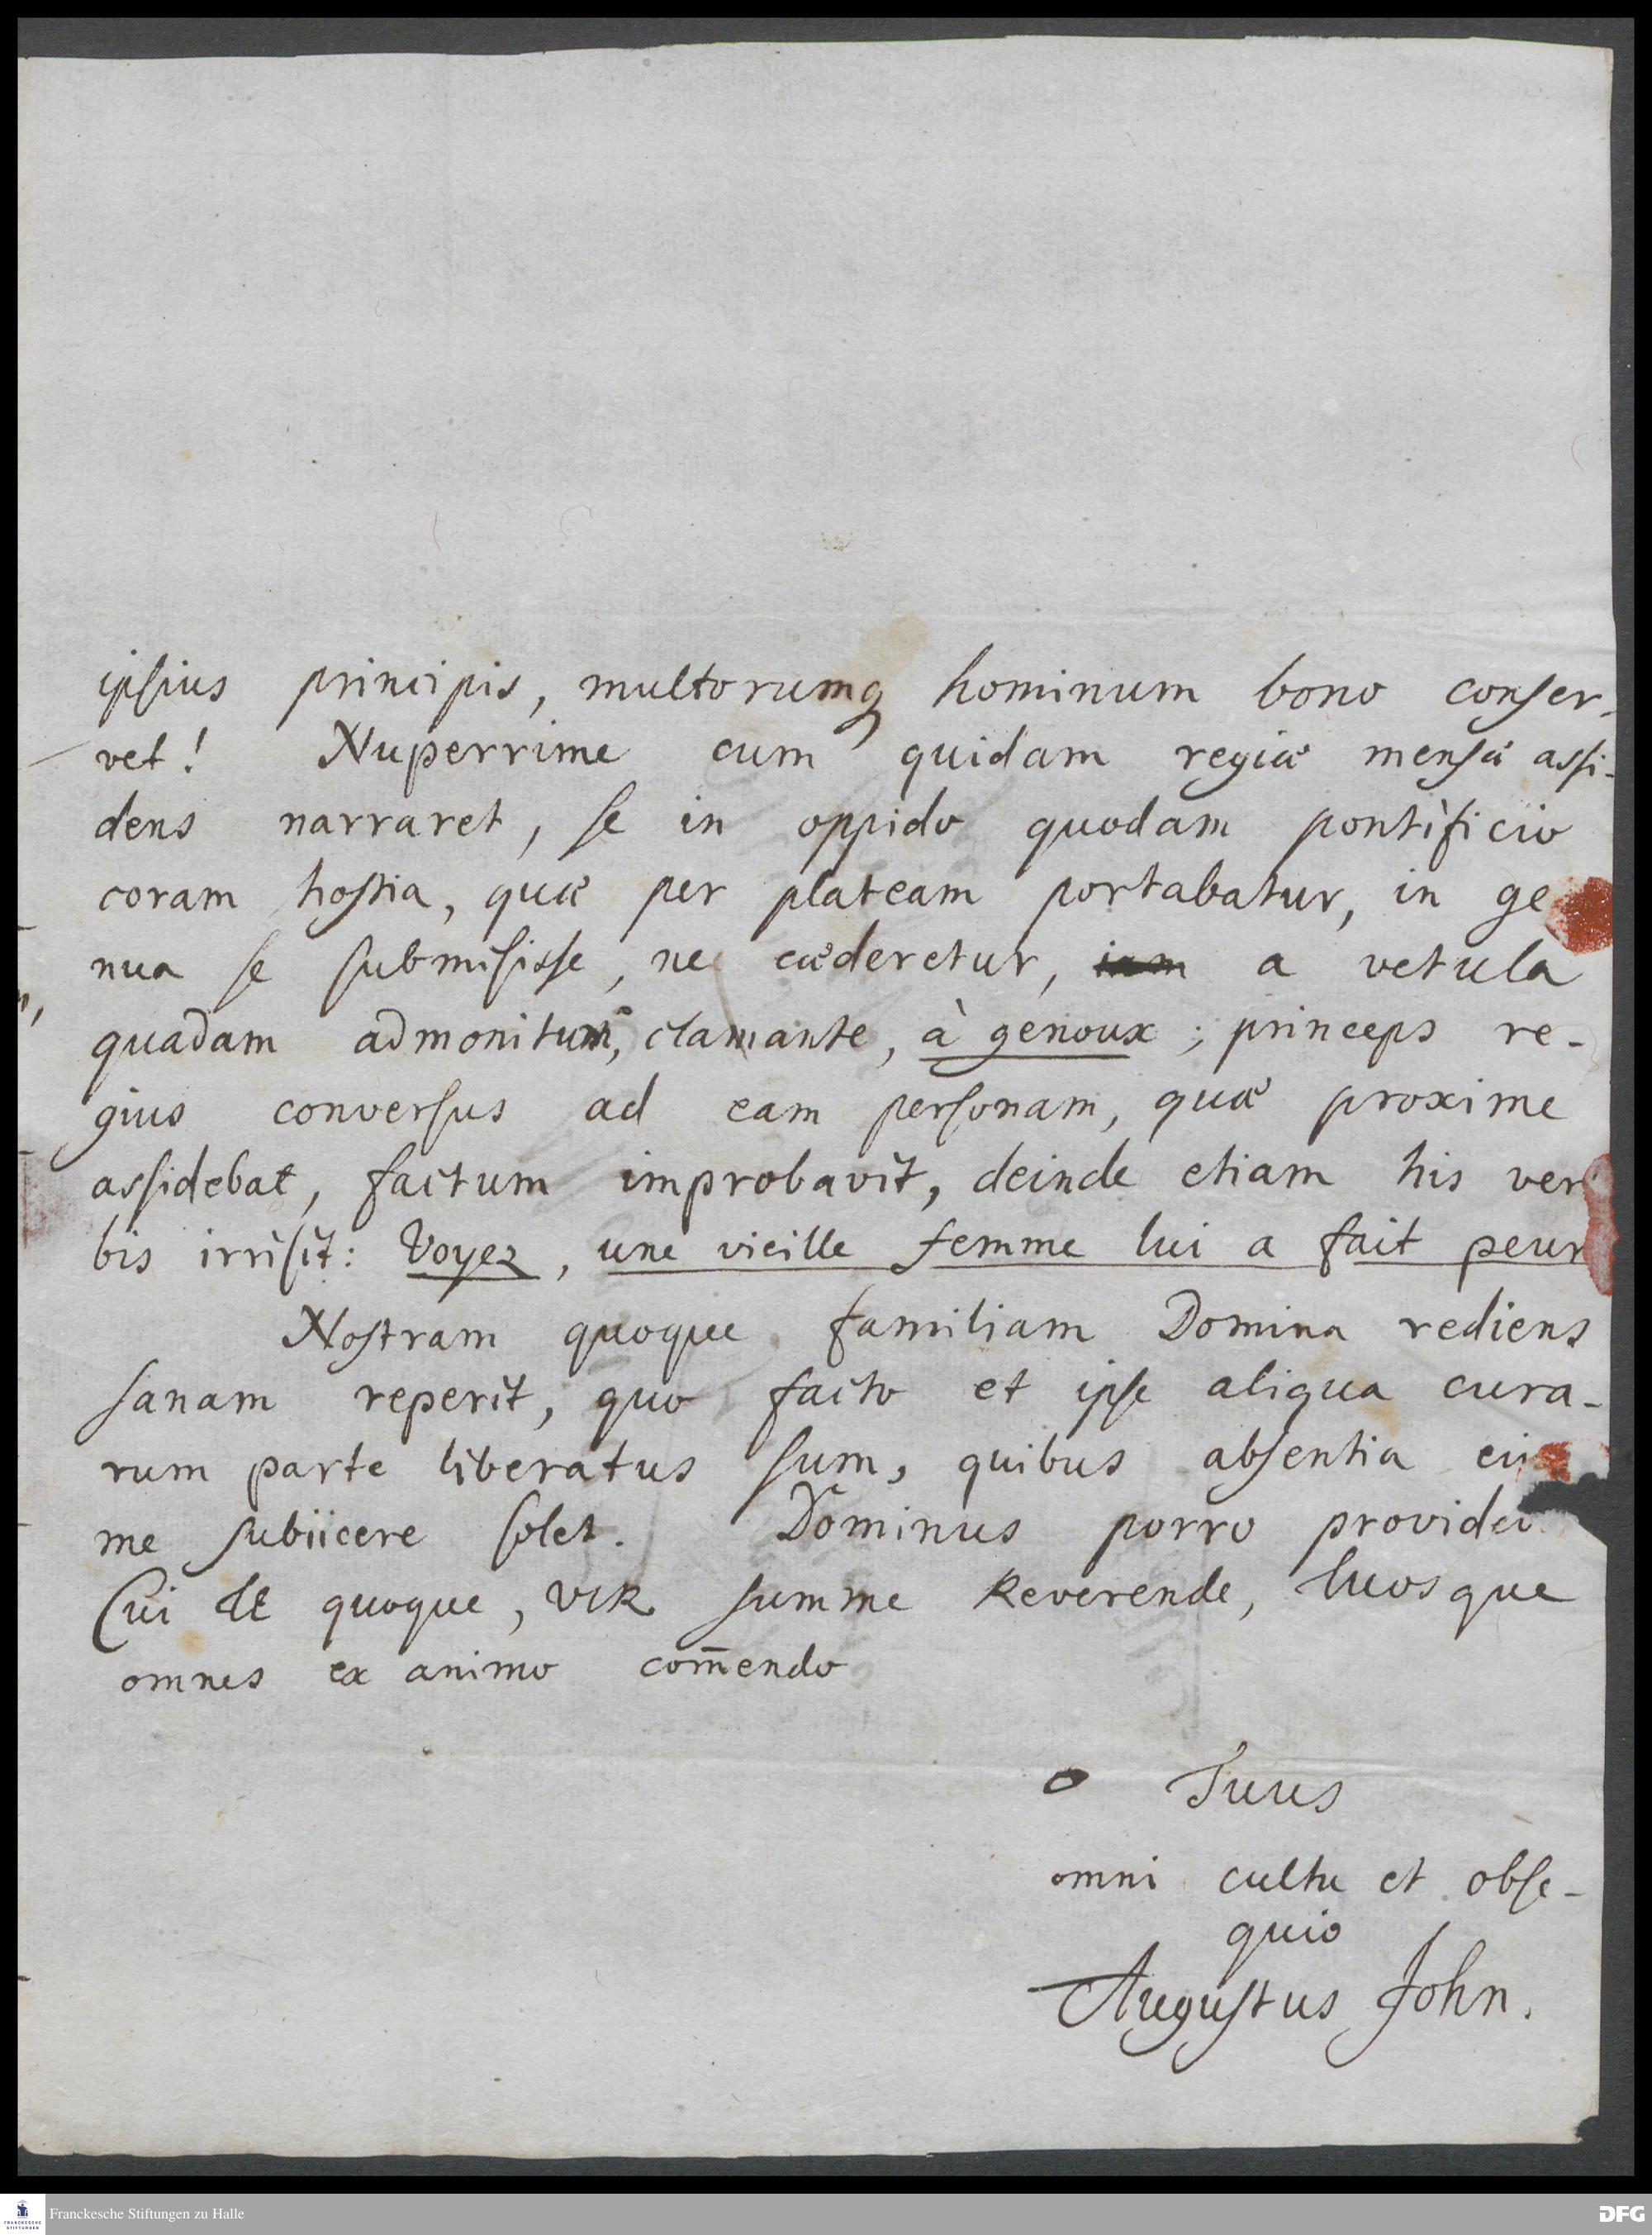 ipsius principis, multorumq hominum bono conser-
vet! Nuperrime cum quidam regiæ mensæ assi-
dens narraret, se in oppido quodam pontificio
coram hostia, quæ per plateam portabatur, in ge
nua se submisisse, ne cæderetur, a vetula
quadam admonitum, clamante, à genoux; princeps re-
gius conversus ad eam personam, quæ proxime
assidebat, factum improbavit, deinde etiam his ver
bis irrisit: Voyez, une vieille femme lui a fait peur
Nostram quoque familiam Domina rediens
sanam reperit, quo facto et ipse aliqua cura-
rum parte liberatus sum, quibus absentia
me subiicere solet. Dominus porro
Cui te quoque, VIR summe Reverende, tuosque
omnes ex animo com̄endo
Tuus
omni cultu et obse-
quio
Augustus John.
Franckesche Stiftungen zu Halle
DFG